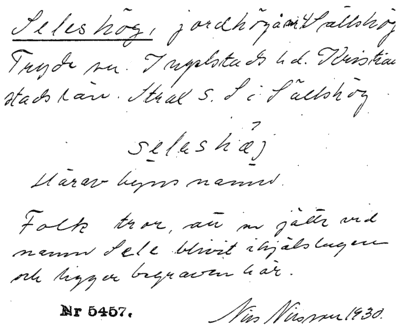 Seleshög, jordhög å nr 1 Sällshög
Tryde sn. Ingelstads hd. Kristian
stads län. Strax S. i Sällshög.
seleshæj
Härav byns namn.
Folk tror, att en jätte vid
namn Sele blivit ihjälslagen
och ligger begraven här.
Nr 5457.
Nils Nilsson 1930.